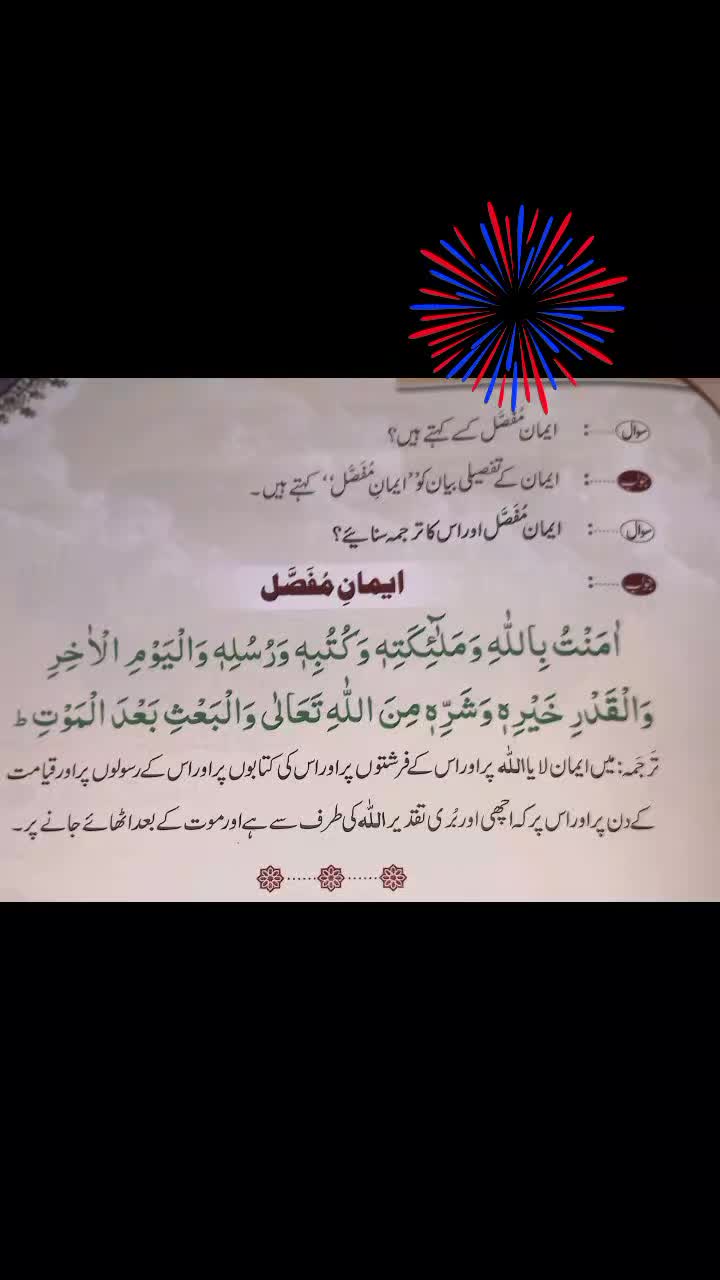 سوال : ایمان مُفَصَّل کسے کہتے ہیں؟
جواب : ایمان کے تفصیلی بیان کو ”ایمانِ مُفَصَّل“ کہتے ہیں۔
سوال : ایمان مُفَصَّل اور اس کا ترجمہ سنائیے؟
جواب : ایمانِ مُفَصَّل
اٰمَنْتُ بِاللّٰهِ وَمَلٰٓئِكَتِهٖ وَكُتُبِهٖ وَرُسُلِهٖ وَالْيَوْمِ الْاٰخِرِ
وَالْقَدْرِ خَيْرِهٖ وَشَرِّهٖ مِنَ اللّٰهِ تَعَالٰى وَالْبَعْثِ بَعْدَ الْمَوْتِ ط
تَرجَمہ: میں ایمان لایا اللہ پر اور اس کے فرشتوں پر اور اس کی کتابوں پر اور اس کے رسولوں پر اور قیامت
کے دن پر اور اس پر کہ اچھی اور بُری تقدیر اللہ کی طرف سے ہے اور موت کے بعد اٹھائے جانے پر۔